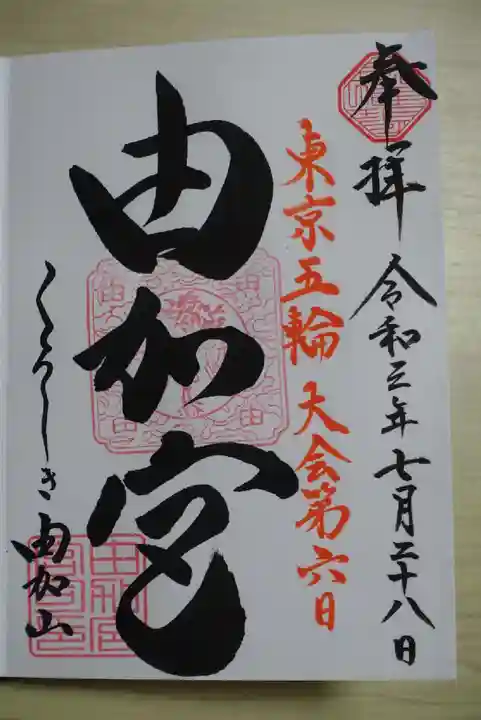 奉拝 令和三年七月二十八日
東京五輪大会第六日
由加宮
くらしき由加山